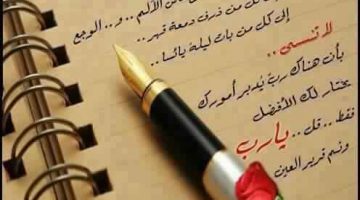 الألم .. و.. الوجع
كل من ذرف دمعة قهر ..
إلى كل من بات ليلة يائسا ..
لا تنسى ..
بأن هناك رب يدبر أمورك
يختار لك الأفضل
فقط .. قل .. يارب
ونم قرير العين